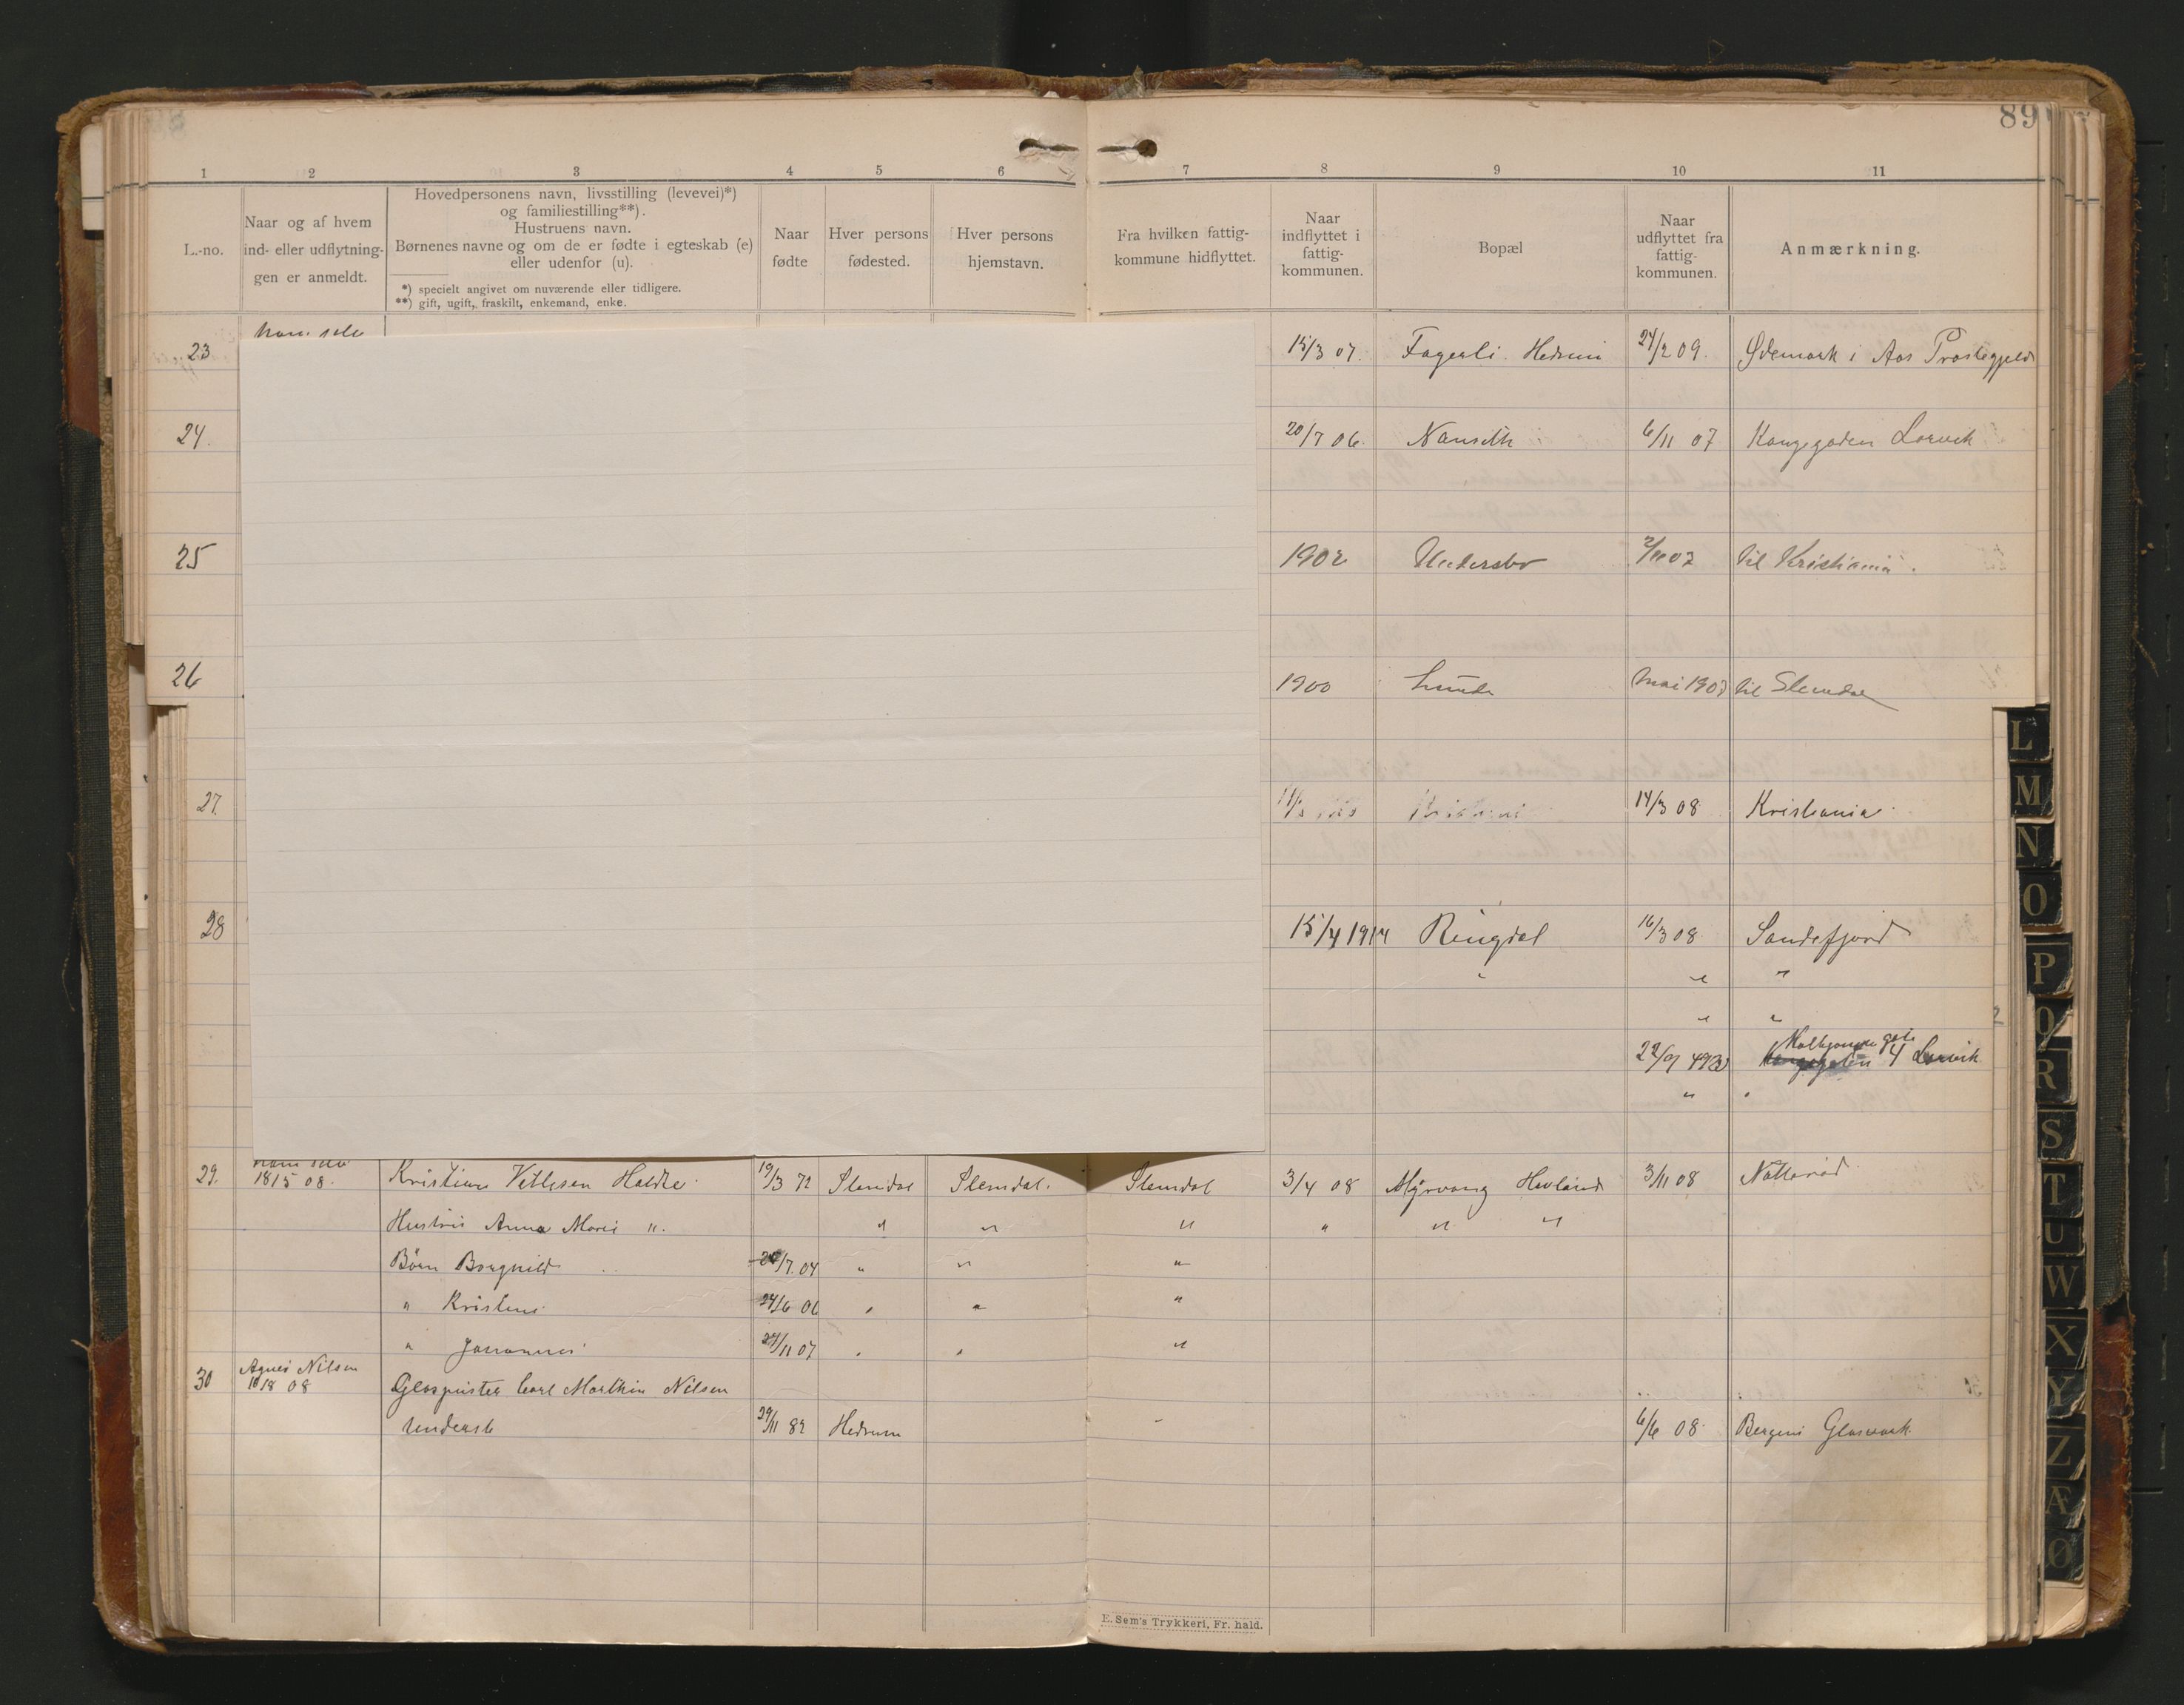 89
1 2 3 4 5 6 7 8 9 10 11
L.-no.
Naar og af hvem
ind- eller udflytning-
gen er anmeldt.
Hovedpersonens navn, livsstilling (levevei)*)
og familiestilling**).
Hustruens navn.
Børnenes navne og om de er fødte i egteskab (e)
eller udenfor (u).
*) specielt angivet om nuværende eller tidligere.
**) gift, ugift, fraskilt, enkemand, enke.
Naar
fødte
Hver persons
fødested.
Hver persons
hjemstavn.
Fra hvilken fattig-
kommune hidflyttet.
Naar
indflyttet i
fattig-
kommunen.
Bopæl
Naar
udflyttet fra
fattig-
kommunen.
Anmærkning.
23 15/3 07. Fagerli Hedrum 24/2 09. Ødemark i Aas Prestegjeld
24. 20/7 06. Nanseth 6/11 07 Kongegaden Larvik
25 1902 Undersbo til Kristiania.
26 1900 Lunde Mai 1907 til Slemdal
27. 14/3 08 Kristiania
28 15/4 1914 Ringdal 16/3 08 Sandefjord
" " "
" "
4 Larvik
" "
29. 18/5 08. Kristian Vetlesen Holdte 19/3 72 Slemdal Slemdal. Slemdal 3/4 08 Myrvang Hovland 3/11 08 Nøtterød
Hustru Anna Marie ". " " " " " "
Børn Borghild 7.04 " " "
" Kristine 24/6 06 " " "
" Johannes 27/11 07 " " "
30 Agnes Nilsen
18/8 08 Glaspuster Carl Marthin Nilsen
Undersb 29/11 82 Hedrum 6/6 08. Bergens Glasværk.
E. Sem's Trykkeri, Fr. hald.
L
M
N
O
P
Q
R
S
T
U
W
X
Y
Z
Æ
Ø